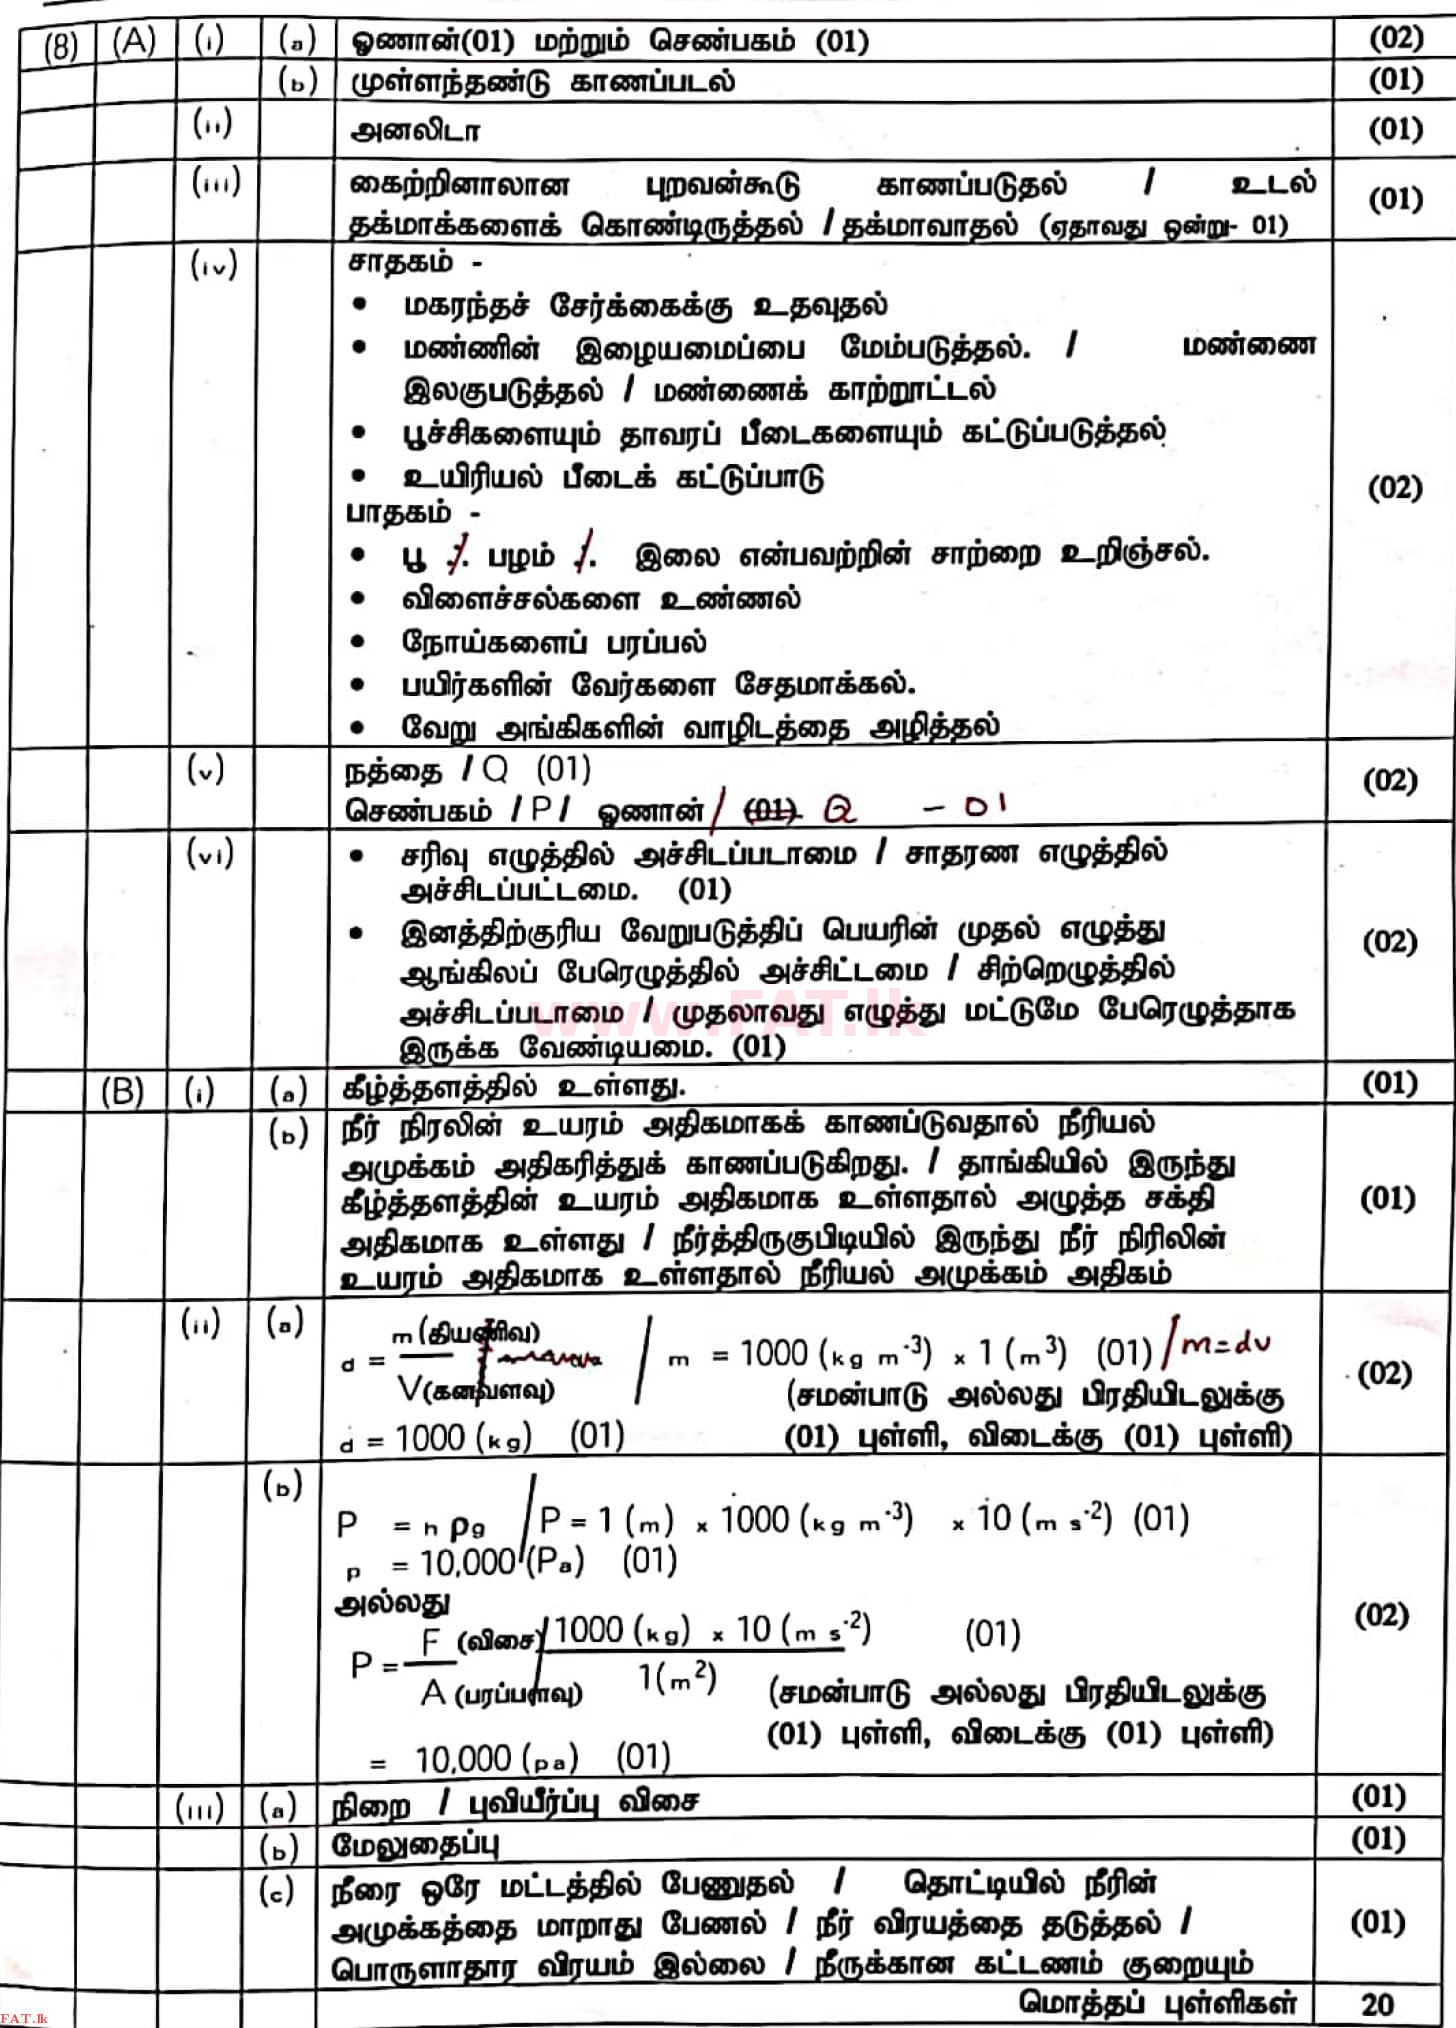 (8) (A) (i) (a) ஓணான்(01) மற்றும் செண்பகம் (01) (02)
(b) முள்ளந்தண்டு காணப்படல் (01)
(ii) அனலிடா (01)
(iii) கைற்றினாலான புறவன்கூடு காணப்படுதல் / உடல்
தக்மாக்களைக் கொண்டிருத்தல் / தக்மாவாதல் (ஏதாவது ஒன்று- 01) (01)
(iv) சாதகம் -
• மகரந்தச் சேர்க்கைக்கு உதவுதல்
• மண்ணின் இழையமைப்பை மேம்படுத்தல். / மண்ணை
இலகுபடுத்தல் / மண்ணைக் காற்றூட்டல்
• பூச்சிகளையும் தாவரப் பீடைகளையும் கட்டுப்படுத்தல்
• உயிரியல் பீடைக் கட்டுப்பாடு
(02)
பாதகம் -
• பூ / பழம் / இலை என்பவற்றின் சாற்றை உறிஞ்சல்.
• விளைச்சல்களை உண்ணல்
• நோய்களைப் பரப்பல்
• பயிர்களின் வேர்களை சேதமாக்கல்.
• வேறு அங்கிகளின் வாழிடத்தை அழித்தல்
(v) நத்தை / Q (01)
செண்பகம் / P / ஓணான் / (01) Q - 01 (02)
(vi) • சரிவு எழுத்தில் அச்சிடப்படாமை / சாதரண எழுத்தில்
அச்சிடப்பட்டமை. (01)
• இனத்திற்குரிய வேறுபடுத்திப் பெயரின் முதல் எழுத்து (02)
ஆங்கிலப் பேரெழுத்தில் அச்சிட்டமை / சிற்றெழுத்தில்
அச்சிடப்படாமை / முதலாவது எழுத்து மட்டுமே பேரெழுத்தாக
இருக்க வேண்டியமை. (01)
www.FAT.lk
(B) (i) (a) கீழ்த்தளத்தில் உள்ளது. (01)
(b) நீர் நிரலின் உயரம் அதிகமாகக் காணப்டுவதால் நீரியல்
அமுக்கம் அதிகரித்துக் காணப்படுகிறது. / தாங்கியில் இருந்து
கீழ்த்தளத்தின் உயரம் அதிகமாக உள்ளதால் அழுத்த சக்தி (01)
அதிகமாக உள்ளது / நீர்த்திருகுபிடியில் இருந்து நீர் நிரிலின்
உயரம் அதிகமாக உள்ளதால் நீரியல் அமுக்கம் அதிகம்
(ii) (a) d = m (திணிவு) / V (கனவளவு) / m = 1000 (kg m⁻³) × 1 (m³) (01) / m = dv
(சமன்பாடு அல்லது பிரதியிடலுக்கு (02)
d = 1000 (kg) (01) (01) புள்ளி, விடைக்கு (01) புள்ளி)
(b) P = hρg / P = 1 (m) × 1000 (kg m⁻³) × 10 (m s⁻²) (01)
p = 10,000 (Pa) (01)
அல்லது (02)
P = F (விசை) / A (பரப்பளவு) / 1000 (kg) × 10 (m s⁻²) / 1(m²) (01)
(சமன்பாடு அல்லது பிரதியிடலுக்கு
(01) புள்ளி, விடைக்கு (01) புள்ளி)
= 10,000 (pa) (01)
(iii) (a) நிறை / புவியீர்ப்பு விசை (01)
(b) மேலுதைப்பு (01)
(c) நீரை ஒரே மட்டத்தில் பேணுதல் / தொட்டியில் நீரின்
அமுக்கத்தை மாறாது பேணல் / நீர் விரயத்தை தடுத்தல் / (01)
பொருளாதார விரயம் இல்லை / நீருக்கான கட்டணம் குறையும்
மொத்தப் புள்ளிகள் 20
FAT.lk